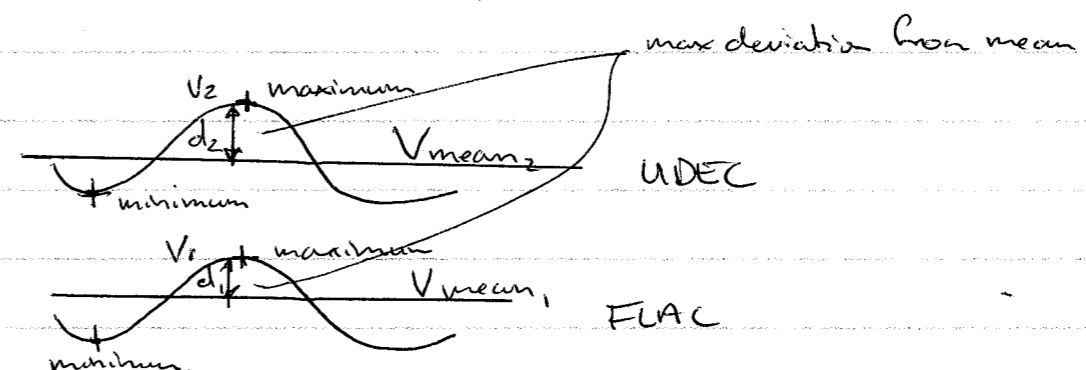 max deviation from mean
V2 maximum
d2
Vmean2
UDEC
minimum
V1 maximum
d1
Vmean1
FLAC
minimum